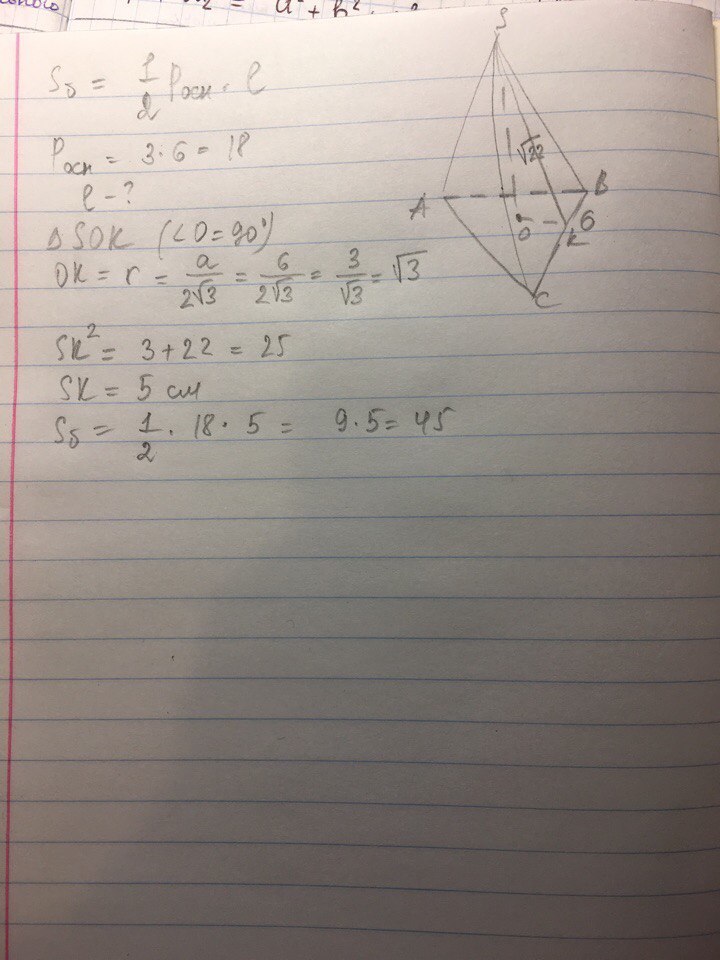 S_б = 1/2 P_осн · l
P_осн = 3·6 = 18
l - ?
Δ SOK (∠O=90°)
OK = r = a/2√3 = 6/2√3 = 3/√3 = √3
SK² = 3+22 = 25
SK = 5 см
S_б = 1/2 · 18 · 5 = 9·5 = 45
S
√22
A
B
O
K
6
C